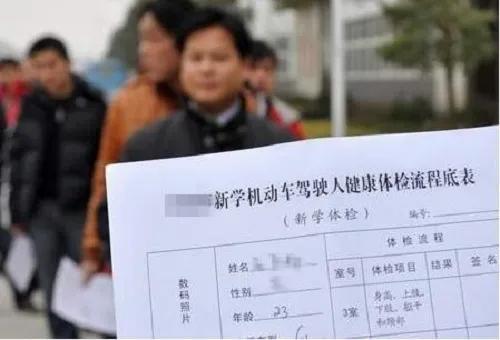 新学机动车驾驶人健康体检流程底表
（新学体检） 编号:
数码照片 姓名 体检流程
性别 室号 体检项目 结果 签名
年龄 23 3室 身高、上肢、
下肢、躯干
和颈部